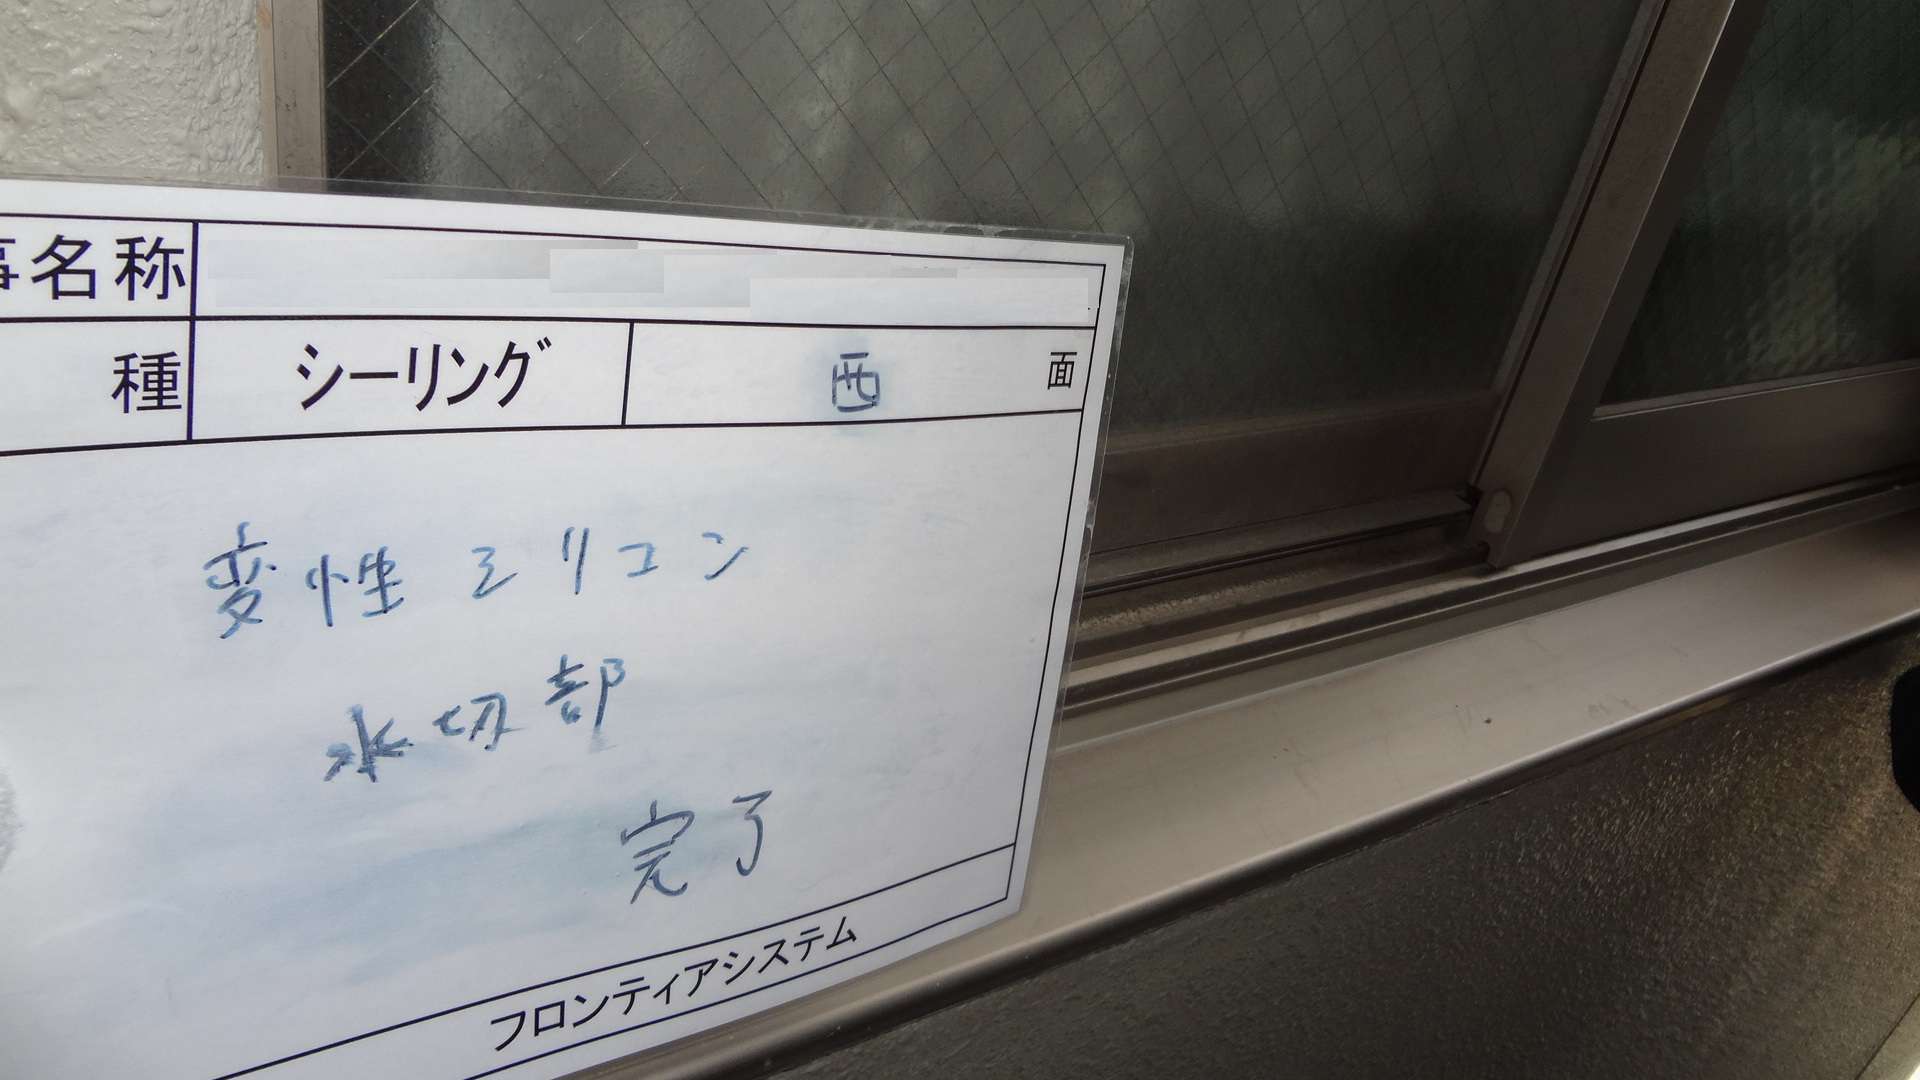 事名称
種 シーリング 西 面
変性シリコン
水切部
完了
フロンティアシステム